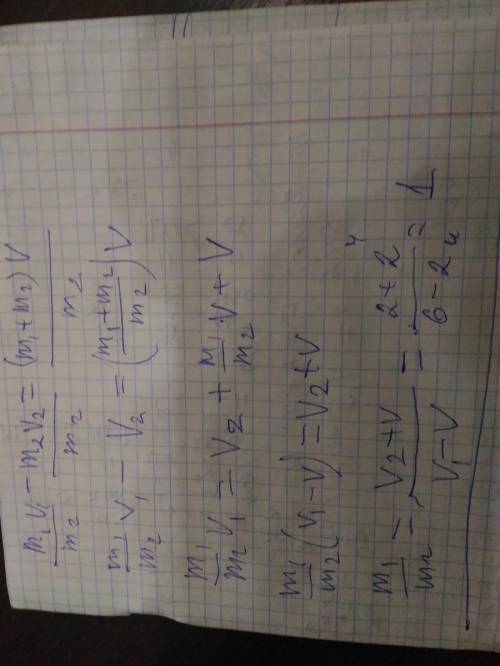 m₁v₁/m₂ - m₂v₂/m₂ = (m₁+m₂)v/m₂
m₁/m₂ v₁ - v₂ = ((m₁+m₂)/m₂)v
m₁/m₂ v₁ = v₂ + m₁/m₂ · v + v
m₁/m₂ (v₁-v) = v₂+v
m₁/m₂ = (v₂+v)/(v₁-v) = (2+2)/(6-2) = 4/4 = 1